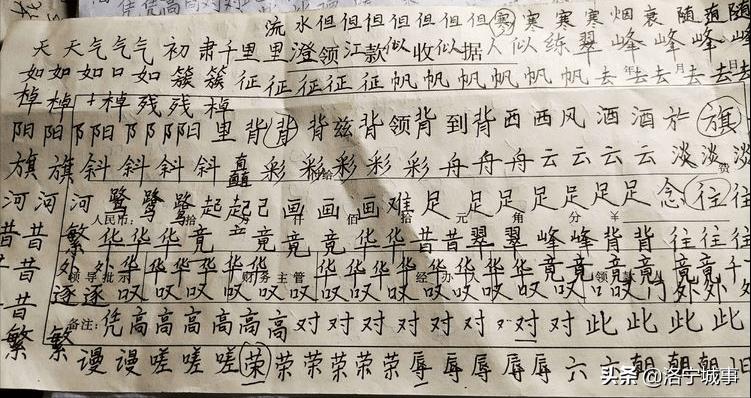 流水但但但但但但寒寒寒寒烟衰随随随
天天气气气初肃千里里澄领江款似收似据人似练翠峰峰峰峰
如如如口如簇簇征征征征帆帆帆帆帆帆帆去年去月去日去
棹棹十棹残残棹
阳阳阳阳阳阳里背背背兹背领背到背西西风酒酒於旗
旗旗斜斜斜斜矗彩彩彩彩彩舟舟舟云云云云淡淡
河河河鹭鹭鹭起起己画画画难足足足足足足足念往往
人民币: 拾 仟 佰 拾 元 角 分 ¥
昔昔繁华华华竟竟竟竟华华昔昔翠翠峰峰背背往往往
领导批示 财务主管 经办
外外华华华华华华华华华华华竟竟竟竟竟千
昔逐逐叹叹叹叹叹叹叹叹叹叹叹叹门外外外
备注: 凭高高高高高高对对对对对对对此此此此此
繁繁谩谩嗟嗟嗟荣荣荣荣荣荣辱辱辱辱辱六六朝朝朝旧
头条@洛宁城事